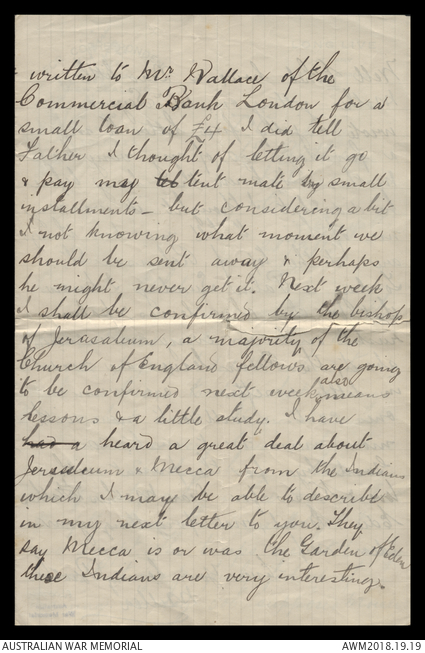 written to Mr Wallace of the
Commercial Bank London for a
small loan of £4 I did tell
Father I thought of letting it go
& pay my tent mate by small
installments - but considering a bit
& not knowing what moment we
should be sent away & perhaps
he might never get it. Next week
I shall be confirmed by the bishop
of Jerasaleum, a majority of the
Church of England fellows are going
to be confirmed next week, also means
lessons & a little study. I have
had a heard a great deal about
Jerusleum & Mecca from the Indians
which I may be able to describe
in my next letter to you. They
say Mecca is or was the Garden of Eden
these Indians are very interesting.
AUSTRALIAN WAR MEMORIAL
AWM2018.19.19